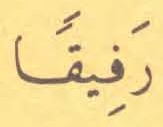 رَفِيقًا